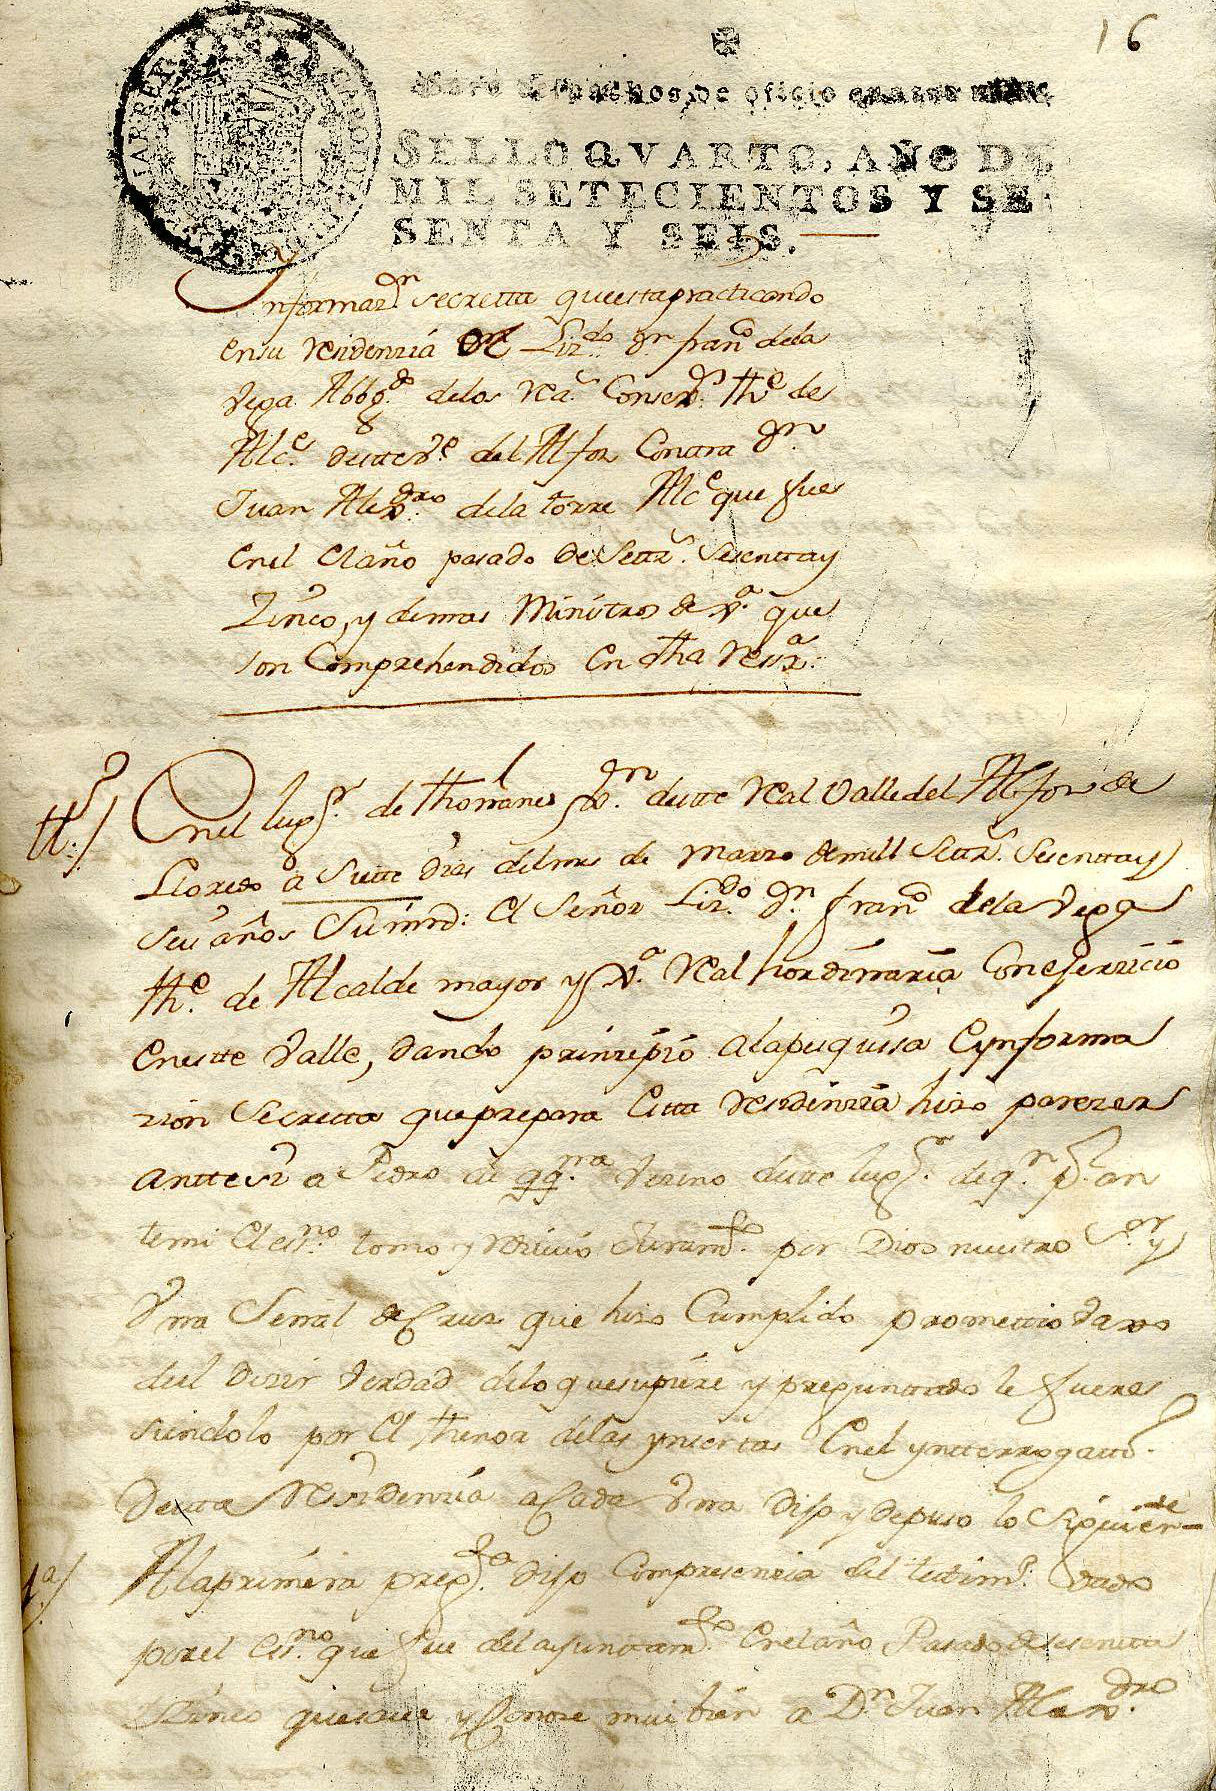 16
para despachos de oficio quatro mrs.
SELLO QVARTO, AÑO DE
MIL SETECIENTOS Y SE-
SENTA Y SEIS.
Ynformaz.on secretta que esta practicando
en su residenzia el Liz.do Dn fran.co de la
Vega Abbg.do de los Rea.s Consex.s The. de
Alc.e de este R.e del Alfoz Contra Dn
Juan Alexdro. de la torre Alc.e que fue
en el el año pasado de Settz.s Sesentta y
Zinco, y demas Ministros de xª que
son Comprehendidos en dha Resª.
ttº./ En el lug.r de thorranes xx.on de este Real Valle del Alfoz de
Lloredo a Siette dias del mes de Marzo de mill Settz.s Sesentta y
seis años Su mrd: el Señor Liz.do Dn fran.co de la Vega
the. de Alcalde mayor y xª Real hordinaria Con ejerzicio
en estte Valle, dando prinzipio a la pesquisa e ynforma
zion Secretta que prepara esta Residenzia hizo parezer
antte si a Pedro de qq.na Vezino de este lug.r de q.n p.r an
te mi el es.no tomo y rezivio Juram.to por Dios nuestro S.or y
Vna Señal de Cruz que hizo Cumplido promettio vaxo
de el dezir Verdad de lo que supiere y preguntado le fuere
siendolo por el thenor de las ynsertas en el ynterrogatto.
de esta Residenzia a Cada Vna dijo y depuso lo Siguiente
1ª/ A la primera preg.ta dijo Compresencia del testim.o dado
por el Es.no que fue del ayuntam.to en el año Pasado de sesentta
Zinco que save y Conoze mui bien a Dn Juan Alexandro.